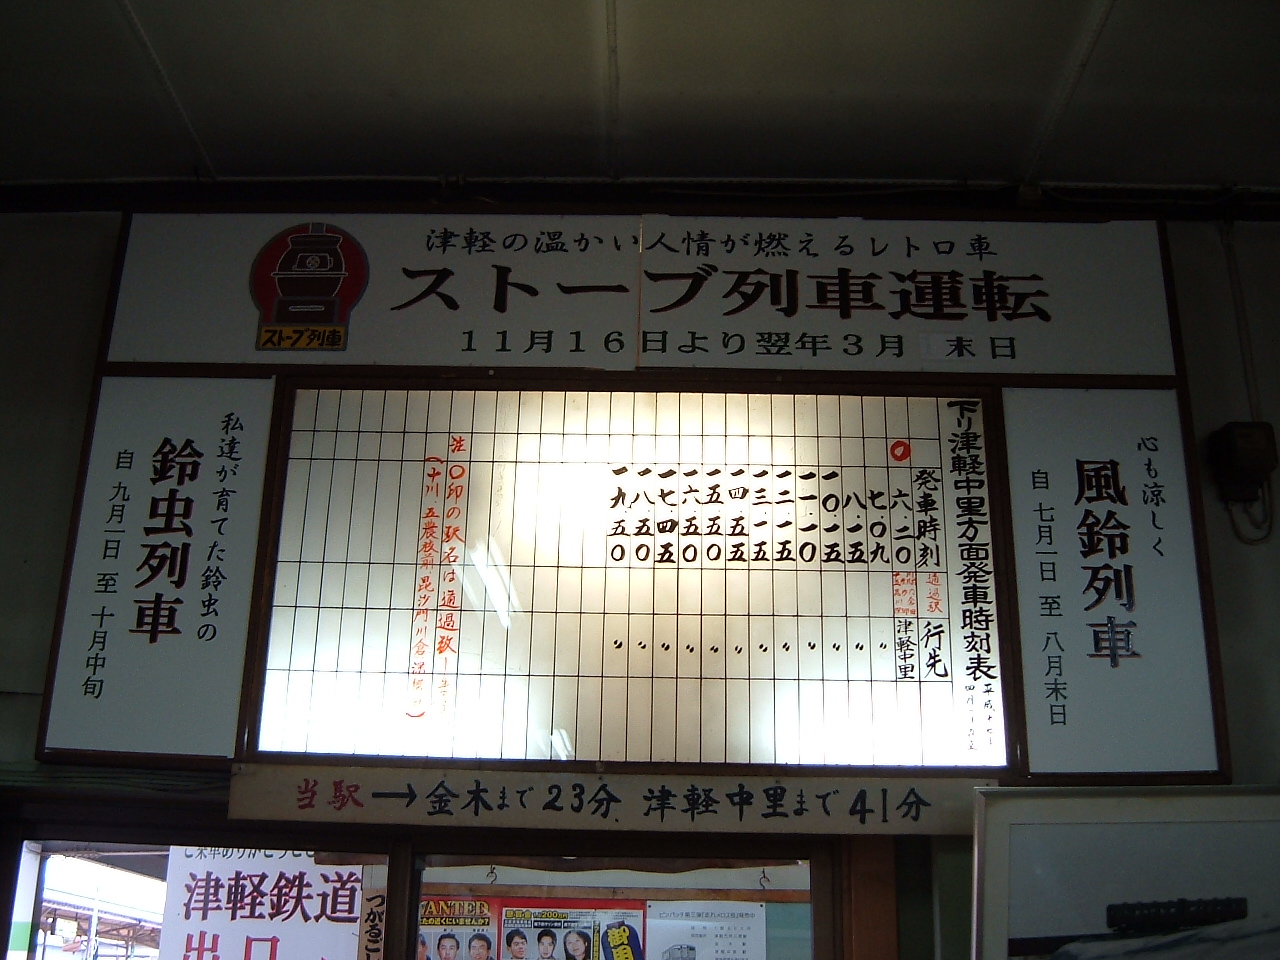 津軽の温かい人情が燃えるレトロ車
ストーブ列車運転
11月16日より翌年3月末日
ストーブ列車
心も涼しく
風鈴列車
自 七月一日 至 八月末日
下り津軽中里方面発車時刻表
発車時刻 通過駅 行先
〇 六.二〇 津軽中里
七.〇九 〃
八.一五 〃
一〇.一五 〃
一一.一〇 〃
一二.一五 〃
一三.一五 〃
一四.五五 〃
一五.五〇 〃
一六.五〇 〃
一七.四五 〃
一八.五〇 〃
一九.五〇 〃
注 〇印の駅名は通過致します
私達が育てた鈴虫の
鈴虫列車
自 九月一日 至 十月中旬
当駅→金木まで23分 津軽中里まで41分
津軽鉄道
出口
WANTED